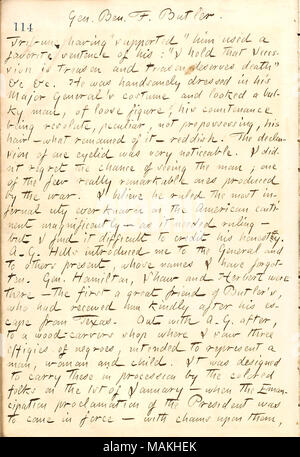 Gen. Ben. F. Butler.
114
Tribune, having "supported" him used a
favorite sentence of his: "I hold that Seces-
sion is treason and treason deserves death"
&c &c. He was handsomely dressed in his
Major General's costume and looked a bulky
man, of loose figure; his countenance
being resolute, peculiar, not prepossessing, his
hair — what remained of it — reddish. The declen-
sion of one eyelid was very noticeable. I did
not regret the chance of seeing the man, one
of the few really remarkable ones produced
by the war. I believe he ruled the most in-
fernal city ever known on the American conti-
nent magnificently — as it needed ruling —
but I find it difficult to credit his honesty.
A. G. Hills introduced me to the General and
to others present, whose names I have forgot-
ten. Gen. Hamilton, Shaw and Herbert were
there — the first a great friend of Butler's,
who had received him kindly after his es-
cape from Texas. Out with A. G. after,
to a wood-carvers shop where I saw three
effigies of negroes, intended to represent a
man, woman and child. It was designed
to carry these in procession by the colored
folks on the 1st of January — when the Eman-
cipation proclamation of the President was
to come in force — with chains upon them,
alamy
Image ID: MAKHEK
www.alamy.com